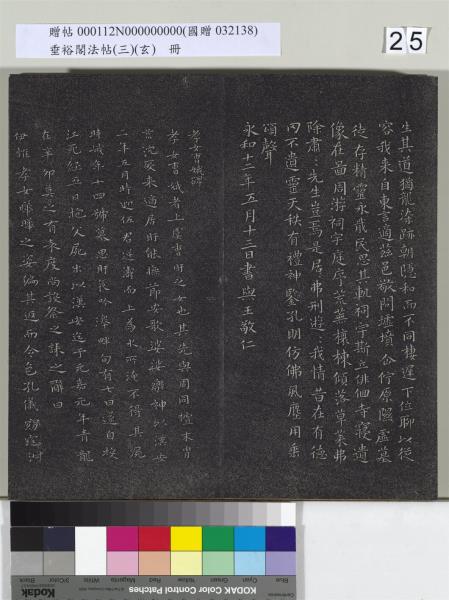 贈帖 000112N000000000(國贈 032138)
垂裕閣法帖(三)(玄) 冊
25
生其道猶龍染跡朝隱和而不同棲遲下位聊以從
容我來自東言適茲邑敬問墟墳企佇原隰虛墓
徒存精靈永戢民思其軌祠宇斯立俳佪寺寢遺
像在圖周游祠宇庭序荒蕪榱棟傾落草萊弗
除肅〻先生豈焉是居弗刑遊〻我情昔在有德
罔不遺靈天秩有禮神鑒孔明仿佛風塵用垂
頌聲
永和十二年五月十三日書與王敬仁
孝女曹娥碑
孝女曹娥者上虞曹盱之女也其先與周同祖末胄
荒沈爰來適居盱能撫節安歌婆娑樂神以漢安
二年五月時迎伍君逆濤而上為水所淹不得其屍
時娥年十四號慕思盱哀吟澤畔旬有七日遂自投
江死經五日抱父屍出以漢安迄于元嘉元年青龍
在辛卯莫之有表度尚設祭之誄之辭曰
伊惟孝女曄曄之姿偏其返而令色孔儀窈窕淑
Blue
Cyan
Green
Yellow
Red
Magenta
White
3/Color
Black
KODAK Color Control Patches
Kodak
LICENSED PRODUCT